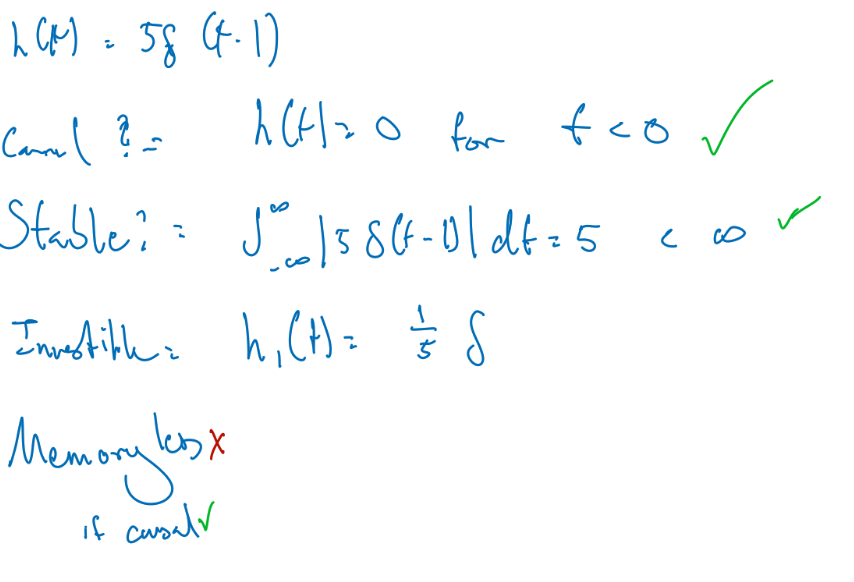 h(t) = 5δ (t-1)
Causal ? = h(t) = 0 for t < 0 ✓
Stable? = ∫_{-∞}^{∞} |5 δ(t-1)| dt = 5 < ∞ ✓
Invertible = h₁(t) = 1/5 δ
Memoryless x
if causal ✓